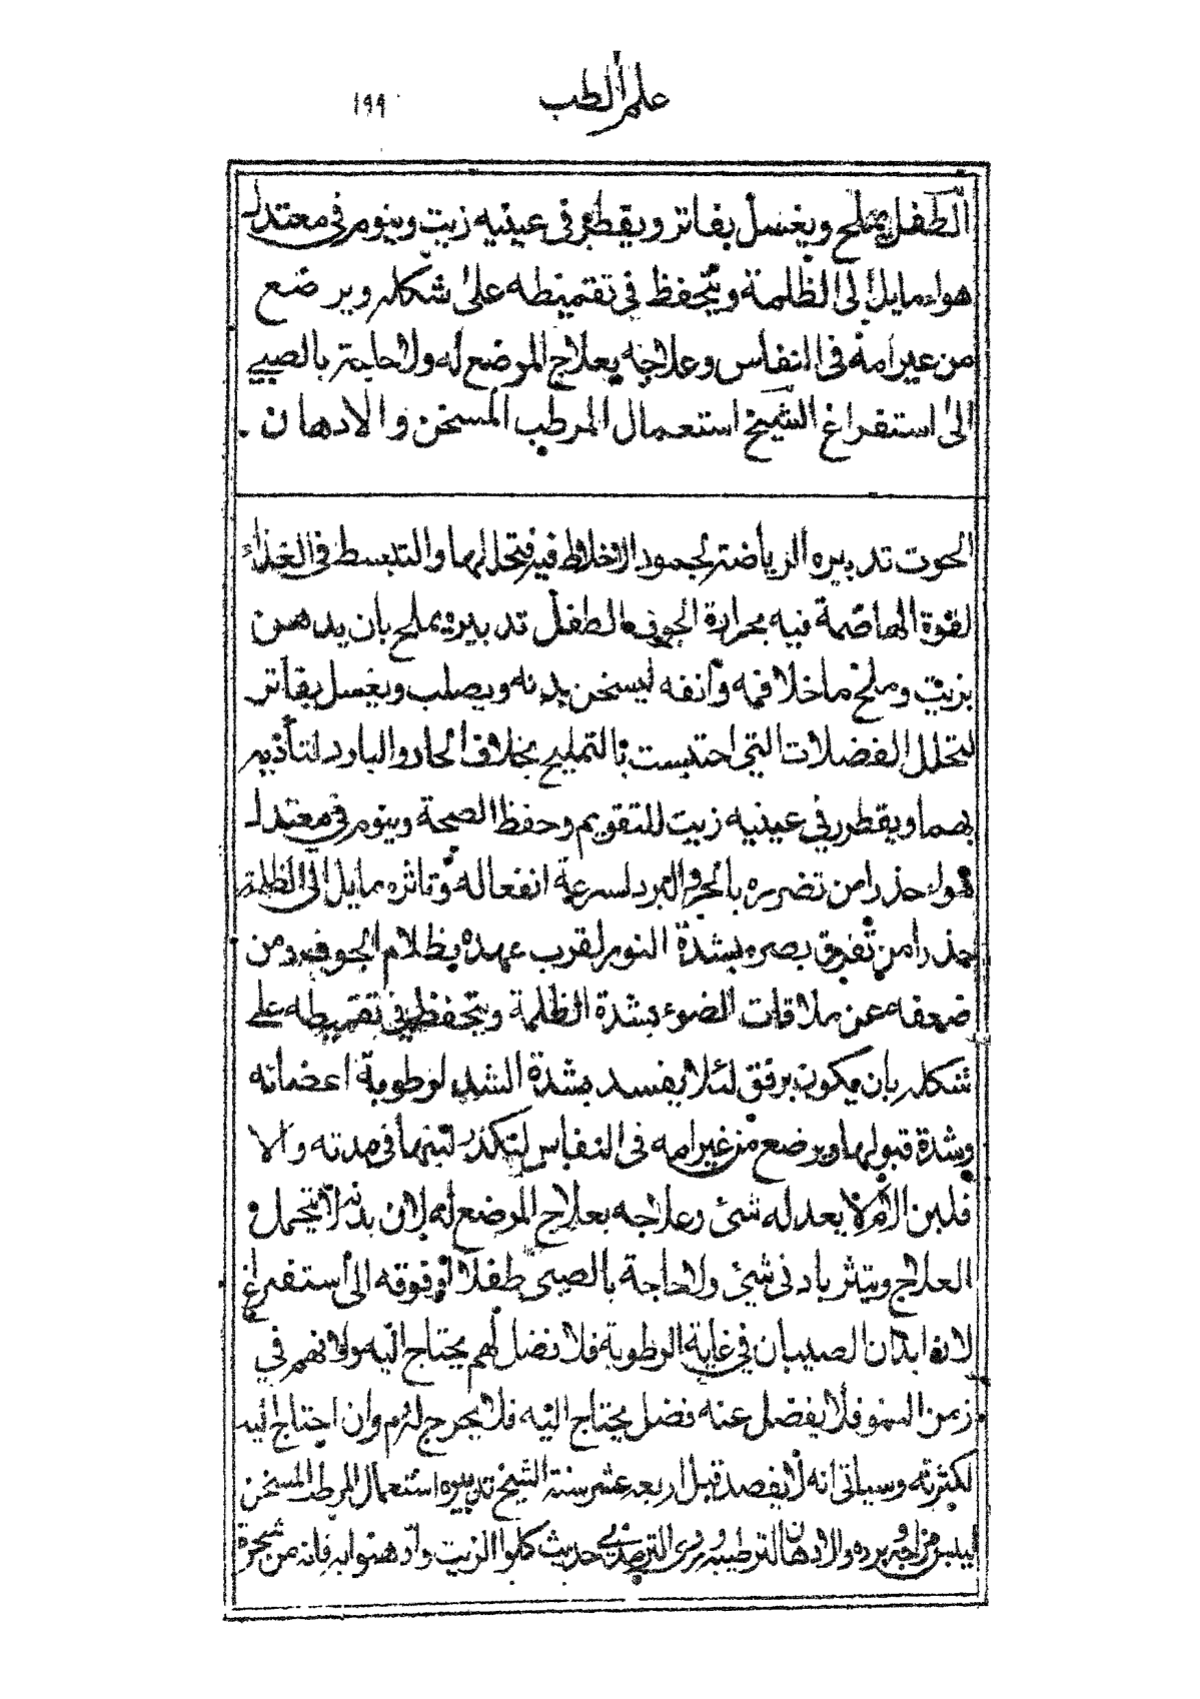 علم الطب
١٩٩
الطفل يملح ويغسل بفاتر ويقطر في عينيه زيت وينوم في معتدل
هواء مايل الى الظلمة ويتحفظ في تقميطه على شكله ويرضع
من غير امه في النفاس وعلاجه بعلاج الموضع له ولا حاجة بالصبي
الى استفراغ الشيخ استعمال المرطب المسخن والادهان .
الحوت تدبيره الرياضة لجمود الاخلاط فيه فتحللها والتبسط في الغذاء
لقوة الهاضمة فيه بحرارة الجوف الطفل تدبيره يملح بان يدهن
بزيت وملح ما خلا فمه وانفه ليسخن بدنه ويصلب ويغسل بفاتر
لتحلل الفضلات التي احتبست بالتمليح بخلاف الحار والبارد لتأذيه
بهما ويقطر في عينيه زيت للتقويم وحفظ الصحة وينوم في معتدل
هواء حذرا من تضرره بالحر والبرد لسرعة انفعاله وتاثره مايل الى الظلمة
حذرا من تفرق بصره بشدة النور لقرب عهده بظلام الجوف ومن
ضعفه عن ملاقات الضوء بشدة الظلمة ويتحفظ في تقميطه على
شكله بان يكون برفق لئلا يفسد بشدة الشد لرطوبة اعضائه
وشدة قبولها ويرضع من غير امه في النفاس لتكدر لبنها في مدته والا
فلبن الام لا يعدله شئ وعلاجه بعلاج الموضع له لان بدنه لا يتحمل
العلاج ويتثر بادنى شئ ولا حاجة بالصبي طفلا او فوقه الى استفراغ
لان ابدان الصبيان في غاية الرطوبة فلا فضل لهم يحتاج اليه ولانهم في
زمن النمو فلا يفضل عنه فضل يحتاج اليه فلا يخرج لهم وان احتاج اليه
لكثرته وسياتي انه لا يفصد قبل اربعة عشر سنة الشيخ تدبيره استعمال المرطب المسخن
ليبس مزاجه وبرده والادهان الترطيبه وروى الترمذي حديث كلوا الزيت وادهنوا به فانه من شجرة